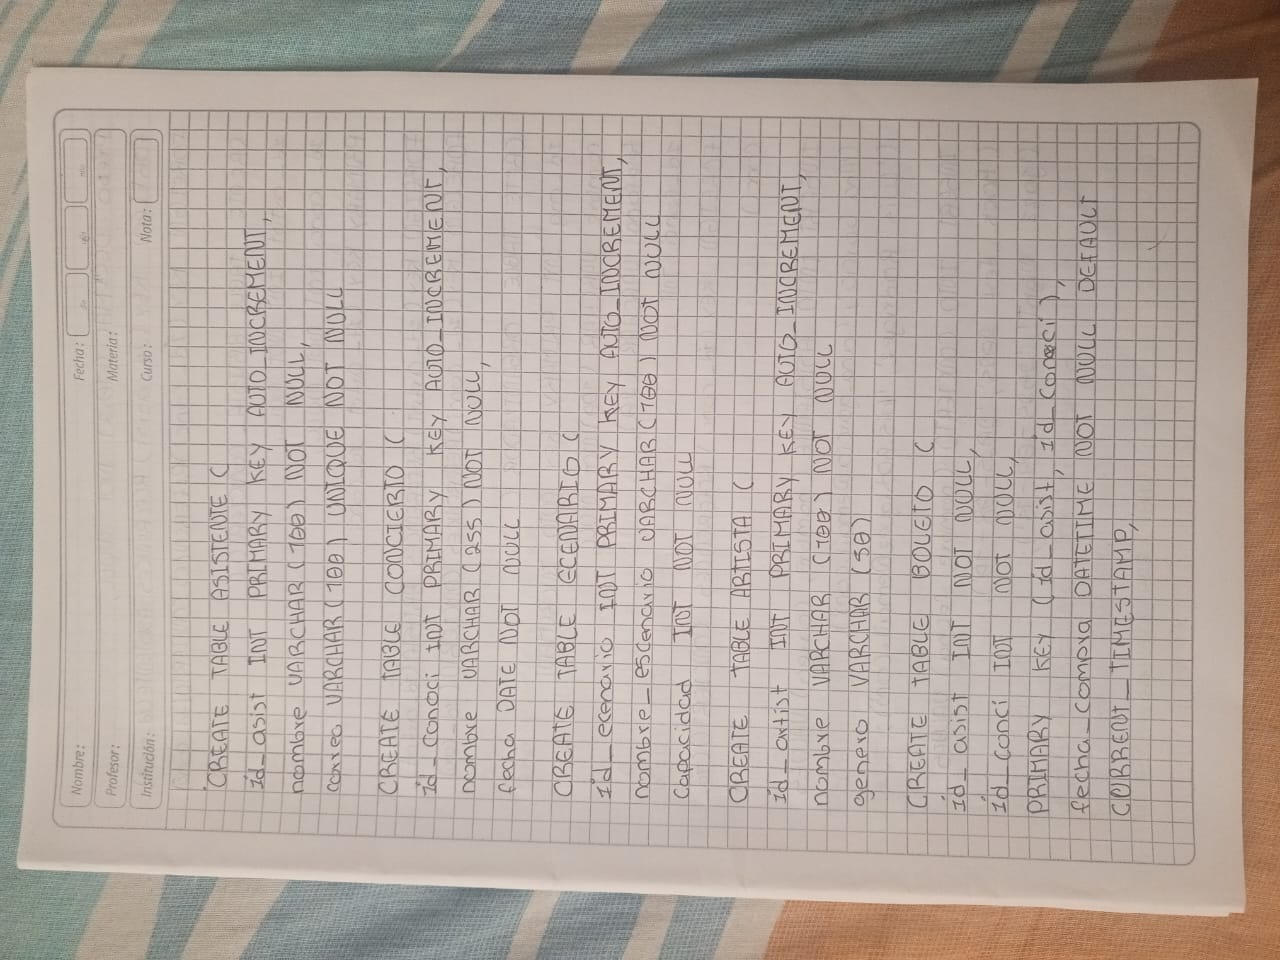 Nombre:
Fecha:
Profesor:
Materia:
Institución:
Curso:
Nota:
CREATE TABLE ASISTENTE (
id_asist INT PRIMARY KEY AUTO_INCREMENT,
nombre VARCHAR (100) NOT NULL,
correo VARCHAR (100) UNIQUE NOT NULL
CREATE TABLE CONCIERTO (
id_conci INT PRIMARY KEY AUTO_INCREMENT,
nombre VARCHAR (255) NOT NULL,
fecha DATE NOT NULL
CREATE TABLE ECENARIO (
id_ecenario INT PRIMARY KEY AUTO_INCREMENT,
nombre_escenario VARCHAR (100) NOT NULL
capacidad INT NOT NULL
CREATE TABLE ARTISTA (
id_artist INT PRIMARY KEY AUTO_INCREMENT,
nombre VARCHAR (100) NOT NULL
genero VARCHAR (50)
CREATE TABLE BOLETO (
id_asist INT NOT NULL,
id_conci INT NOT NULL,
PRIMARY KEY (id_asist, id_conci),
fecha_compra DATETIME NOT NULL DEFAULT
CURRENT_TIMESTAMP,